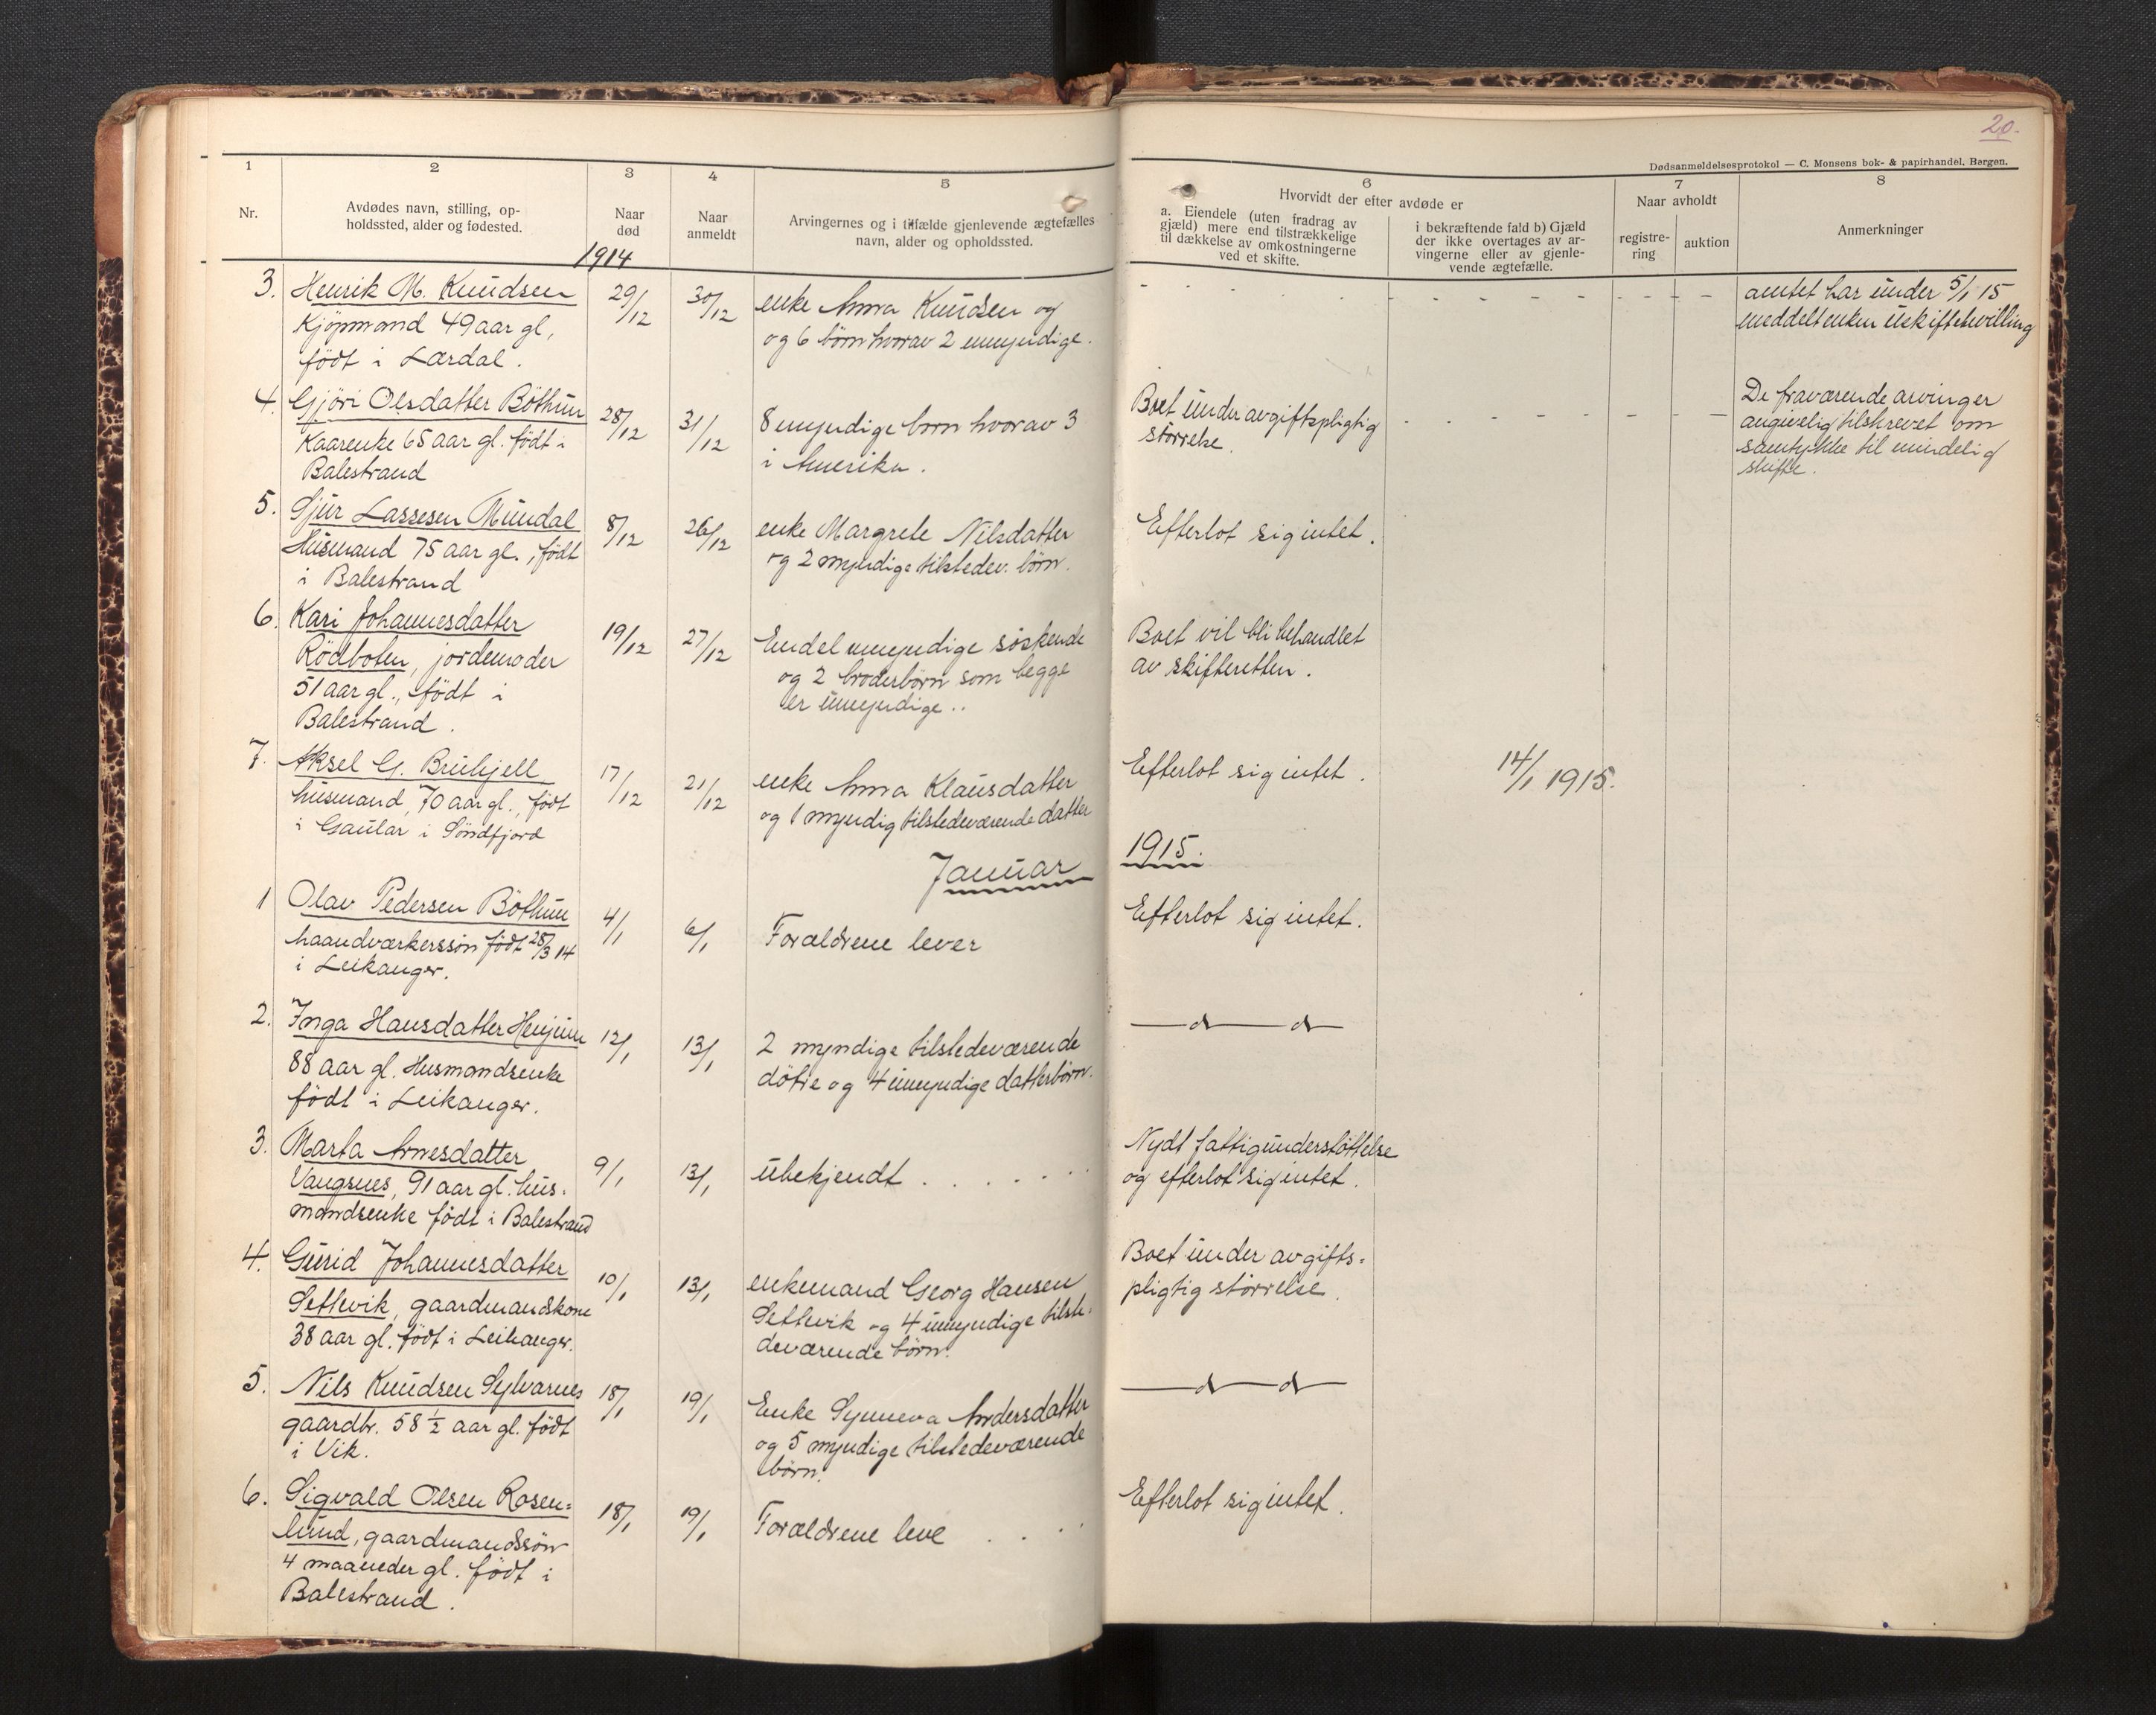 20.
Dødsanmeldelsesprotokol — C. Monsens bok- & papirhandel, Bergen.
1 2 3 4 5 6 7 8
Nr.
Avdødes navn, stilling, op-
holdssted, alder og fødested.
Naar
død
Naar
anmeldt
Arvingernes og i tilfælde gjenlevende ægtefælles
navn, alder og opholdssted.
Hvorvidt der efter avdøde er
a. Eiendele (uten fradrag av
gjæld) mere end tilstrækkelige
til dækkelse av omkostningerne
ved et skifte.
i bekræftende fald b) Gjæld
der ikke overtages av ar-
vingerne eller av gjenle-
vende ægtefælle.
Naar avholdt
registre-
ring
auktion
Anmerkninger
1914
3. Henrik M. Knudsen
Kjöpmand 49 aar gl,
födt i Lærdal.
29/12
30/12
enke Anna Knudsen og
og 6 börn hvorav 2 umyndige.
amtet har under 5/1 15
meddelt enken uskiftebevilling
4. Gjöri Olsdatter Böthun
Kaarenke 65 aar gl. födt i
Balestrand
28/12
31/12
8 myndige barn hvorav 3
i Amerika.
Boet under avgiftspligtig
störrelse.
De fraværende arvinger
angivelig tilskrevet om
samtykke til mindelig
skifte.
5. Sjur Lassesen Mundal
Husmand 75 aar gl., födt
i Balestrand
8/12
26/12
enke Margrete Nilsdatter
og 2 myndige tilstedev. börn.
Efterlot sig intet.
6. Kari Johannesdatter
Rödboten, jordemoder
51 aar gl., födt i
Balestrand.
19/12
27/12
Endel myndige söskende
og 2 broderbörn som begge
er umyndige..
Boet vil bli behandlet
av skifteretten.
7. Aksel G. Bruhjell
husmand, 70 aar gl., födt
i Gaular i Söndfjord
17/12
21/12
enke Anna Klausdatter
og 1 myndig tilstedeværende datter
Efterlot sig intet.
14/1 1915.
Januar 1915.
1 Olav Pedersen Böthun
haandværkerssön födt 28/3 14
i Leikanger.
4/1
6/1
Forældrene lever
Efterlot sig intet.
2. Inga Hansdatter Henjum
88 aar gl. Husmandsenke
födt i Leikanger.
12/1
13/1
2 myndige tilstedeværende
dötre og 4 umyndige datterbörn.
—d—d—
3. Marta Arnesdatter
Vangsnes, 91 aar gl. hus-
mandsenke födt i Balestrand
9/1
13/1
ubekjendt . . . . . .
Nydt fattigunderstöttelse
og efterlot sig intet.
4. Gurid Johannesdatter
Settevik, gaardmandskone
38 aar gl. födt i Leikanger.
10/1
13/1
enkemand Georg Hansen
Settevik og 4 umyndige tilste-
deværende börn.
Boet under avgifts-
pligtig störrelse.
5. Nils Knudsen Sylvarnes
gaardbr. 58 ½ aar gl. födt
i Vik.
18/1
19/1
Enke Synneva Andersdatter
og 5 myndige tilstedeværende
börn.
—d—d—
6. Sigvald Olsen Rosen-
lund, gaardmandssön
4 maaneder gl. födt i
Balestrand.
18/1
19/1
Forældrene leve . . .
Efterlot sig intet.